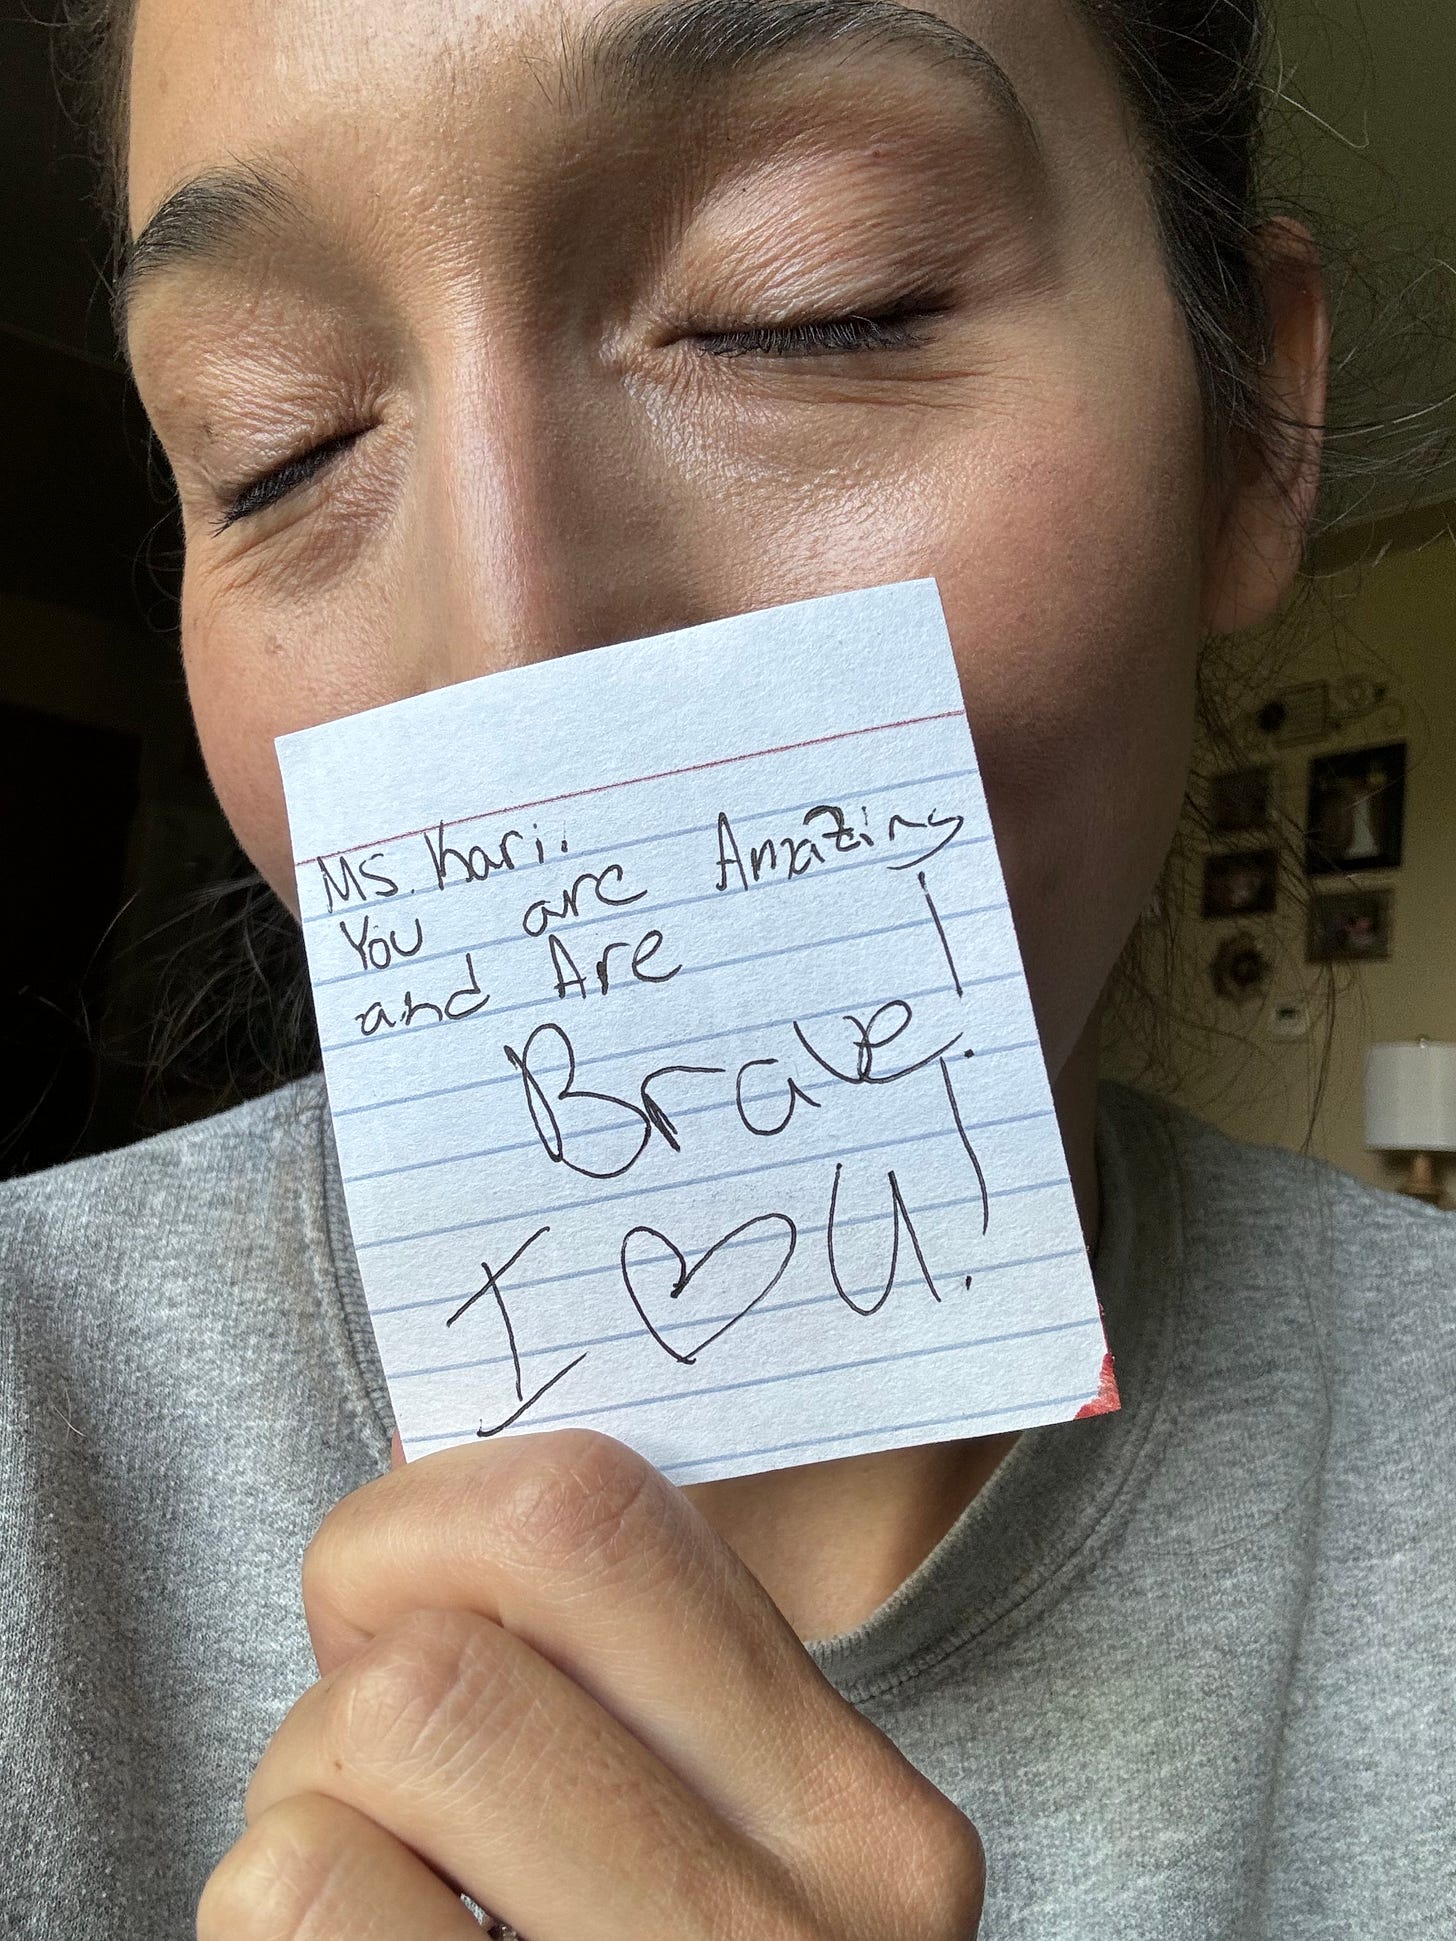 Ms. Kari.
You are Amazing
and Are
Brave!
I ♡ U!